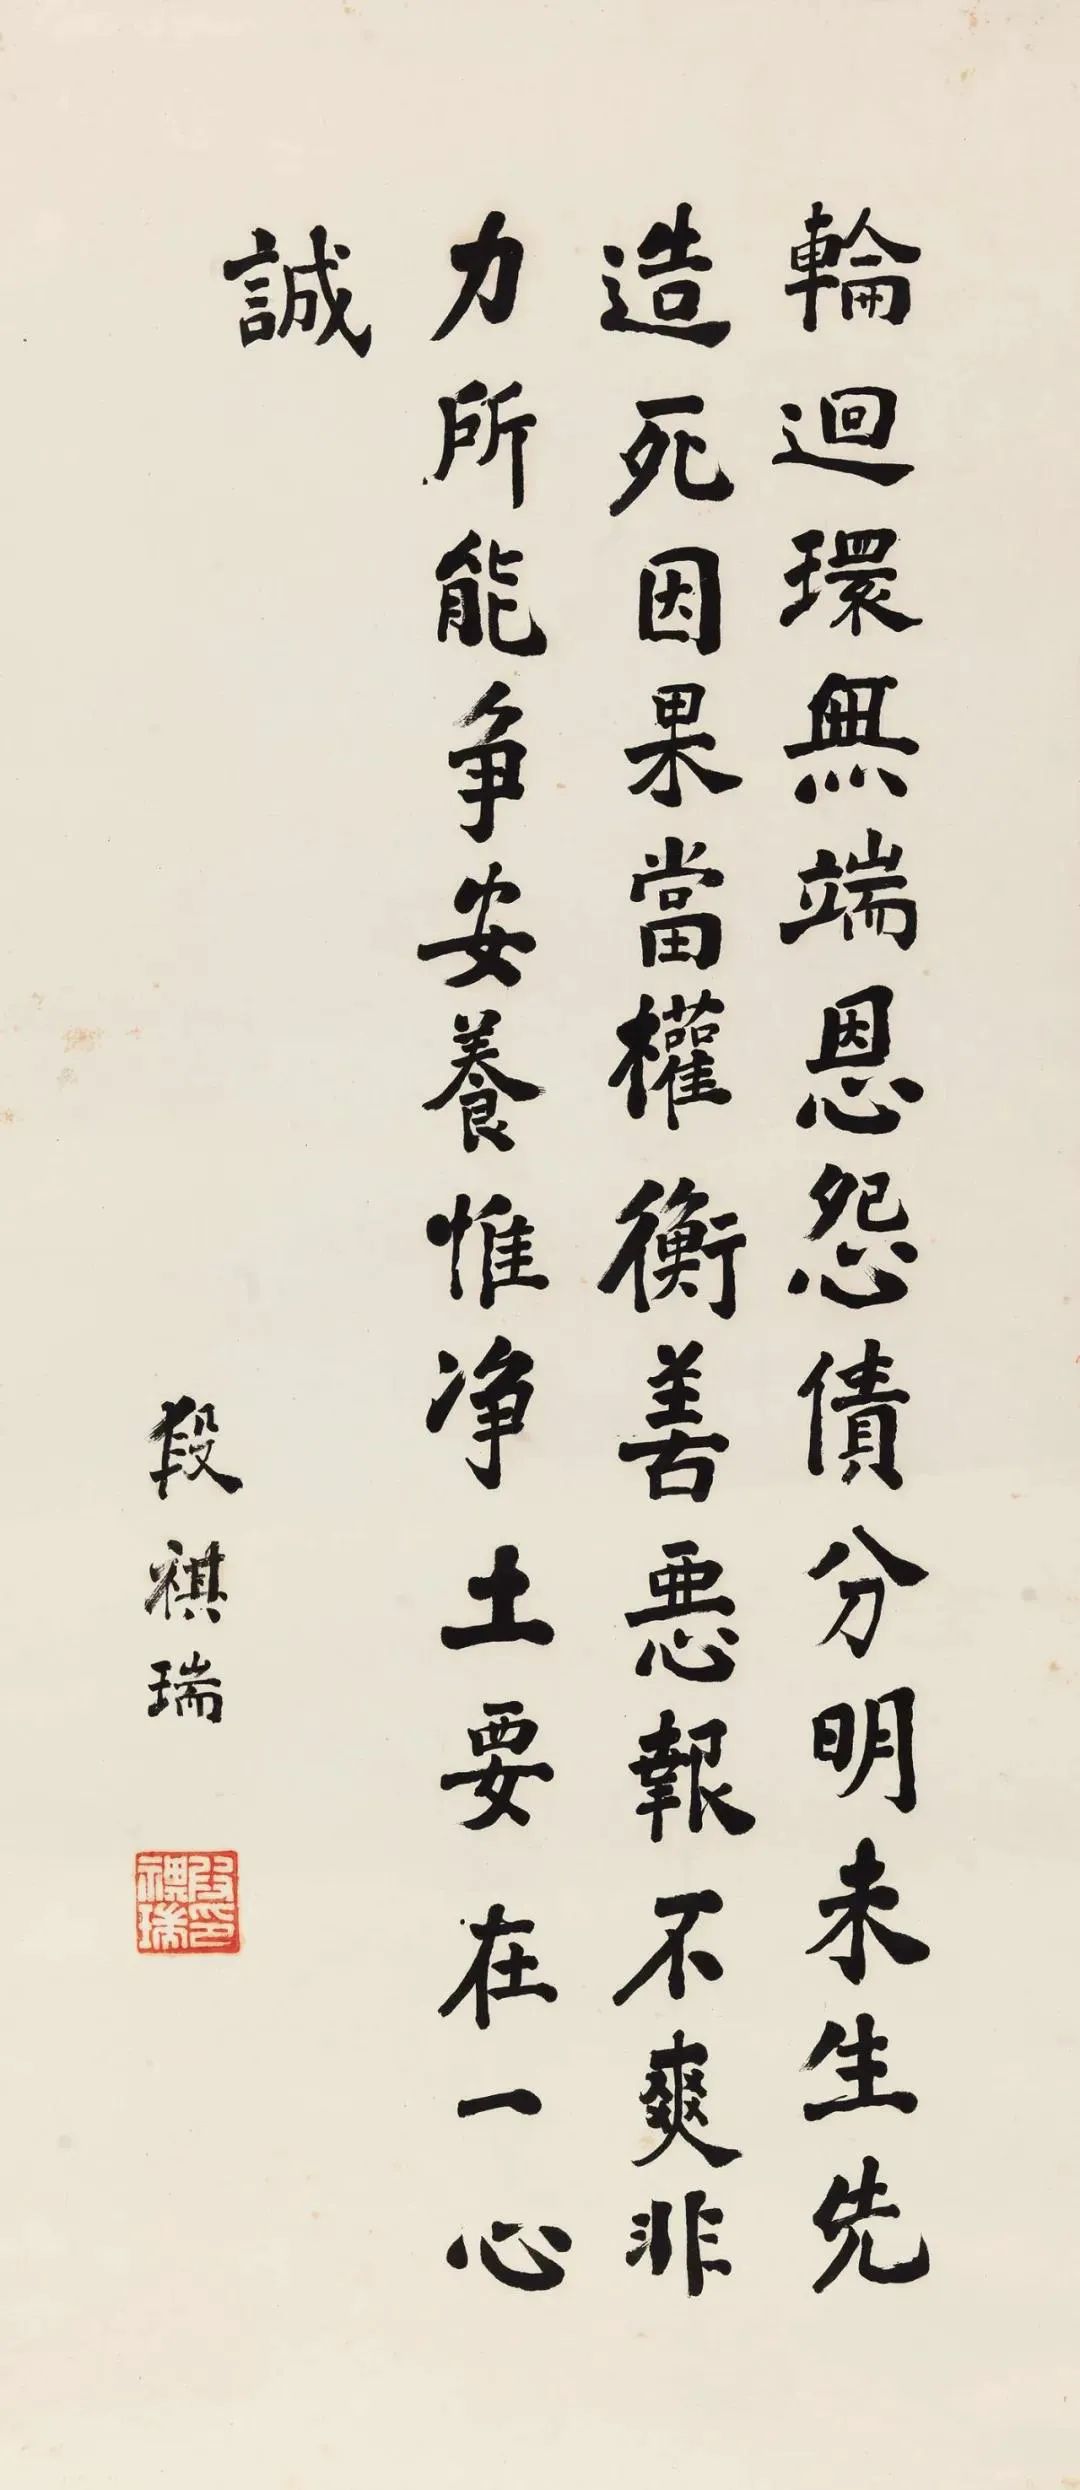 輪迴環無端恩怨債分明未生先
造死因果當權衡善惡報不爽非
力所能争安養惟净土要在一心
誠
段祺瑞
段祺瑞印